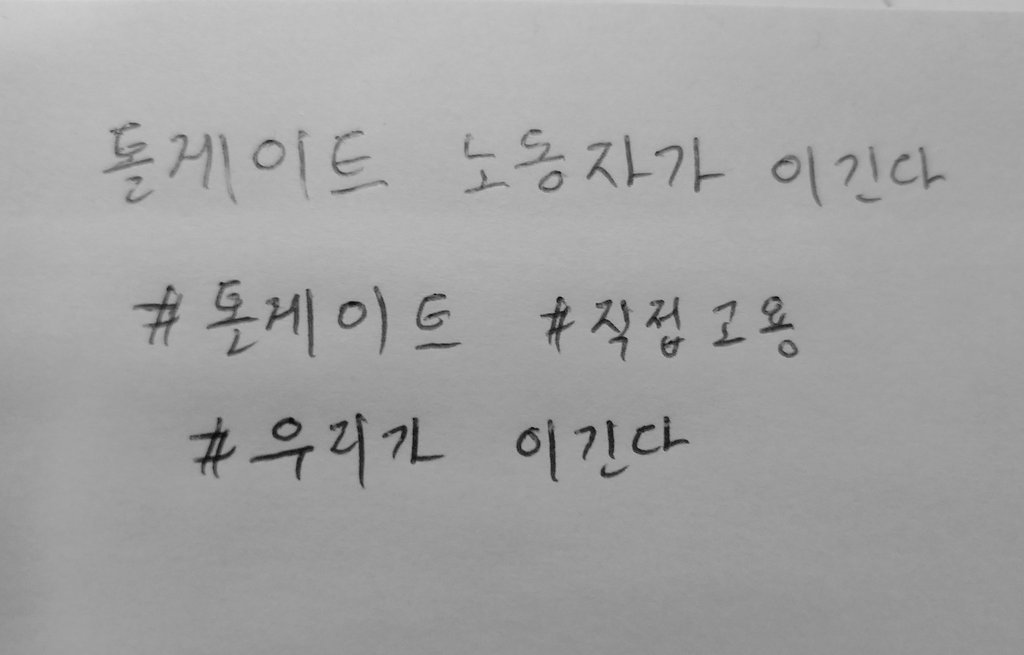 톨게이트 노동자가 이긴다
#톨게이트 #직접고용
#우리가 이긴다